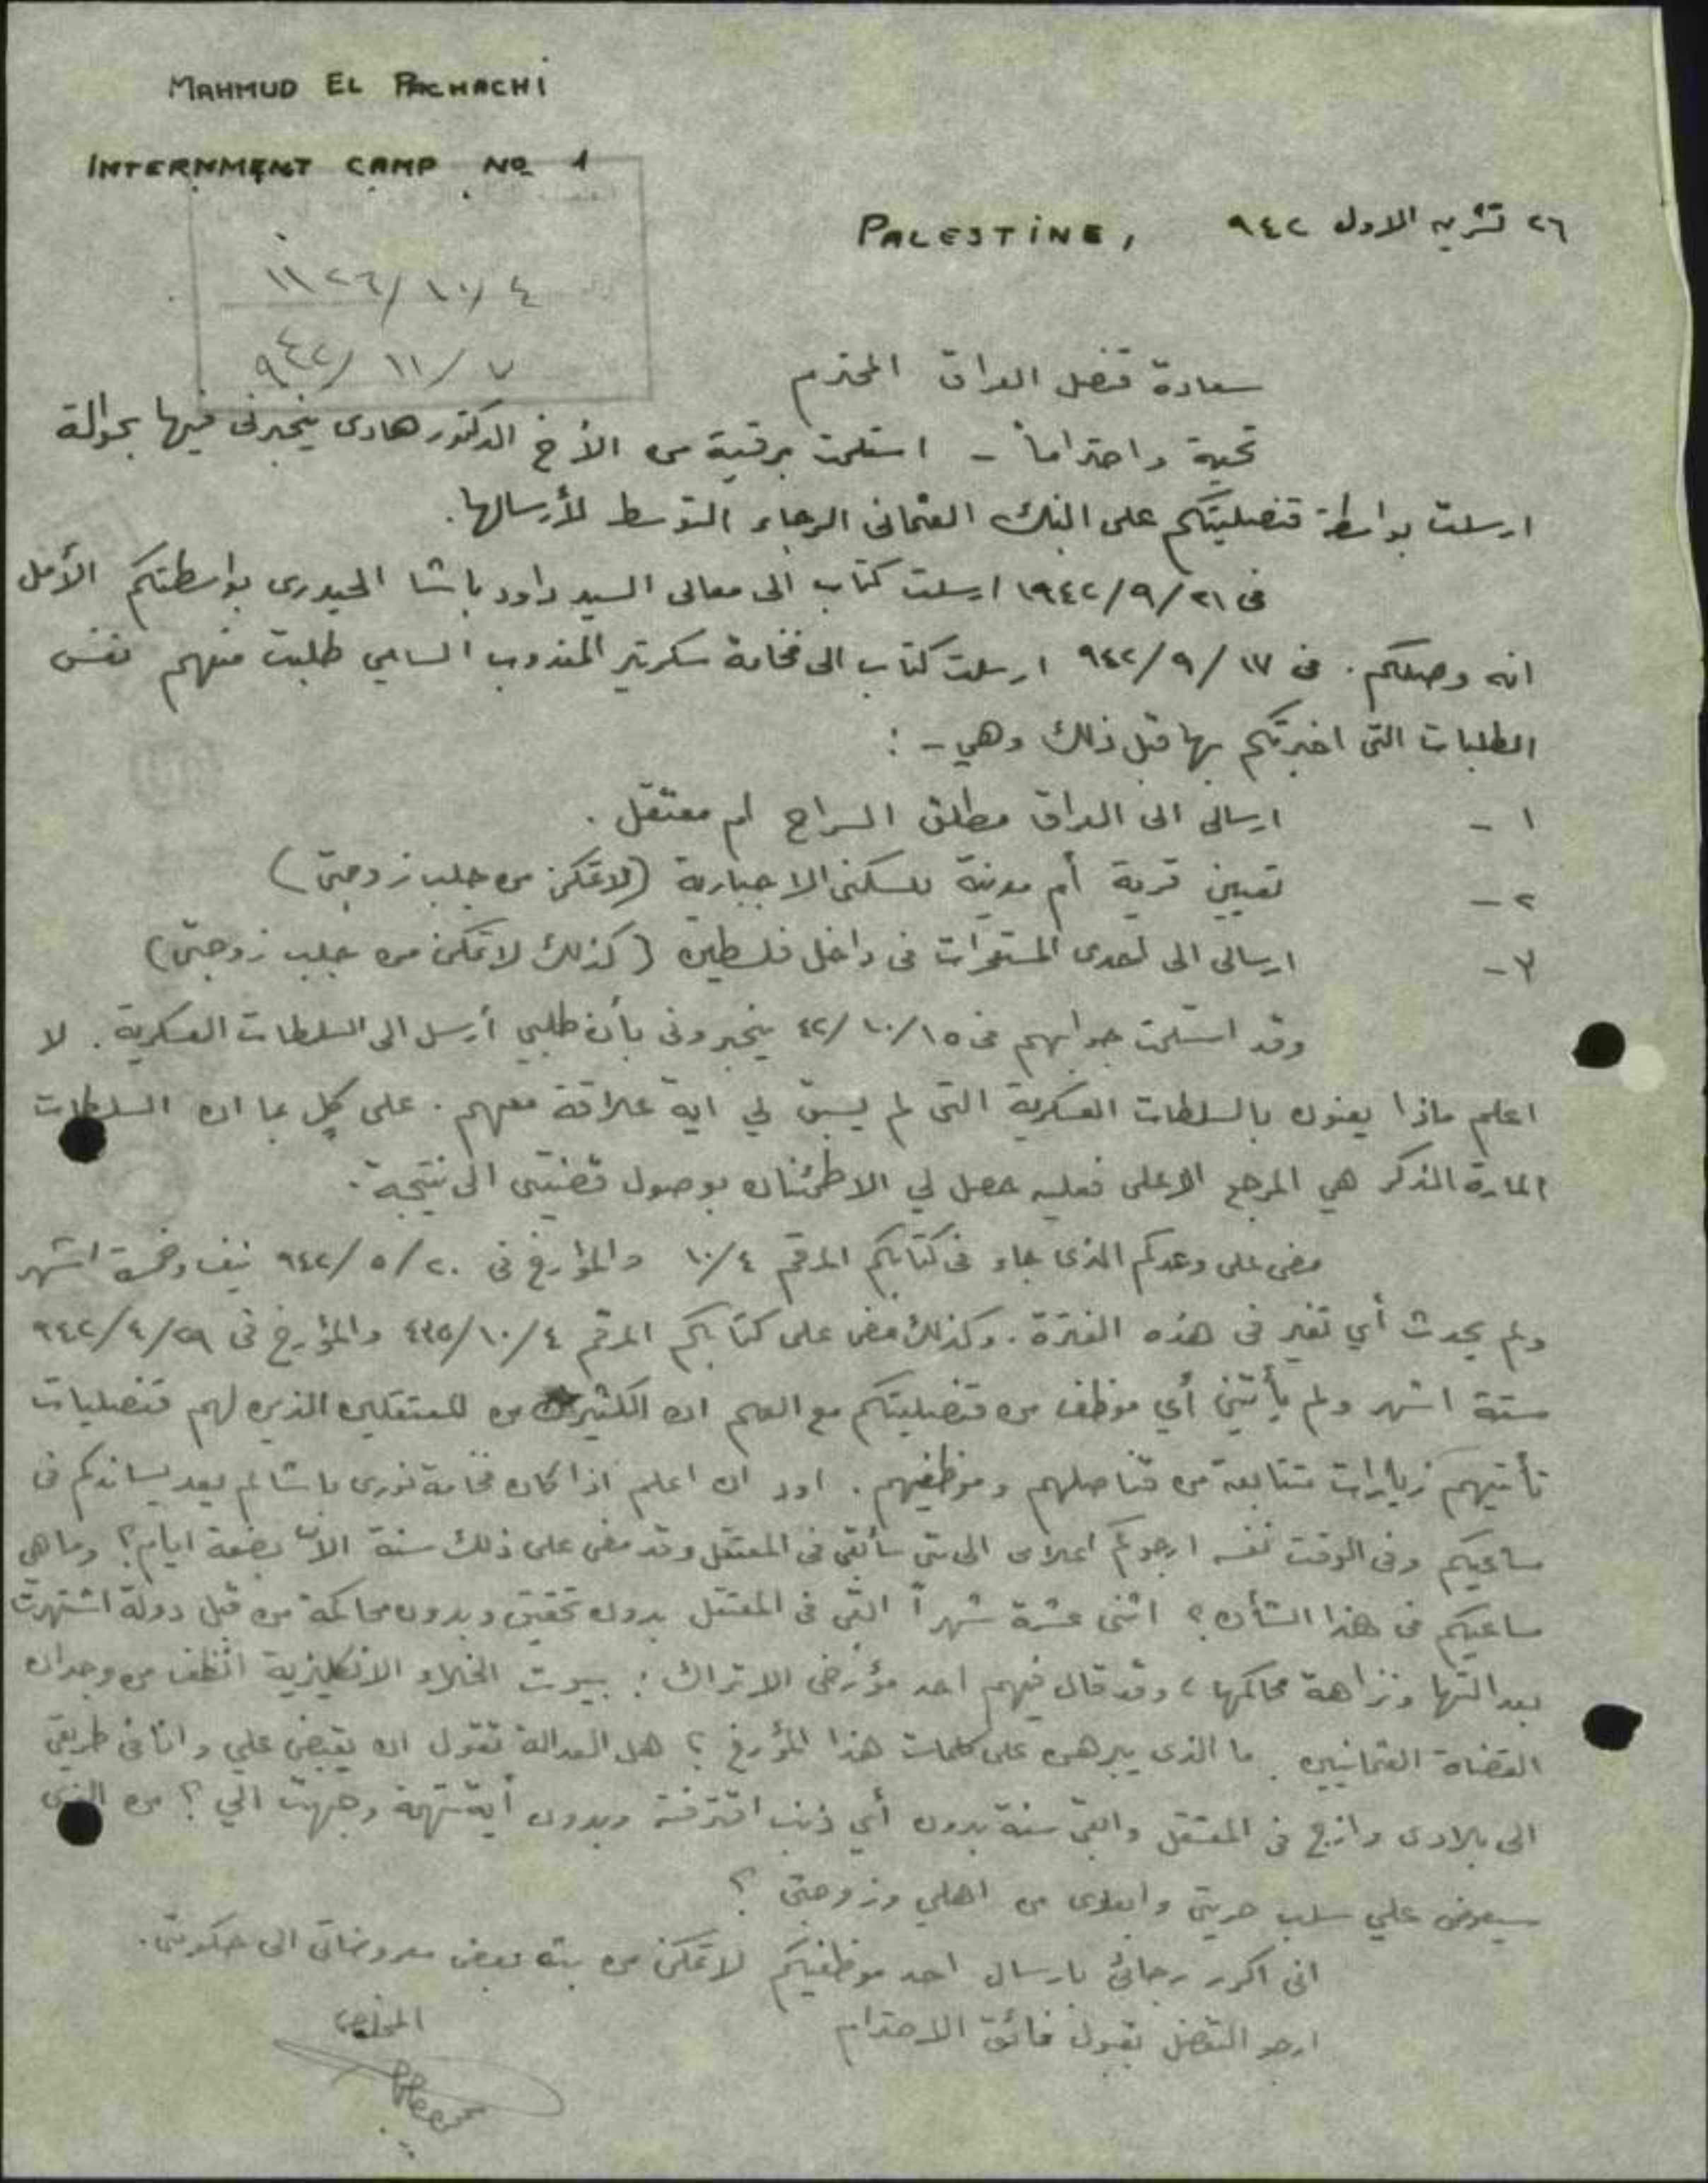 MAHMUD EL PACHACHI
INTERNMENT CAMP No 1
PALESTINE, ٢٦ تشرين الاول ٩٤٢
١١٢٦/١٠/٤
٩٤٢/١١/٧
سعادة قنصل العراق المحترم
تحية واحتراماً - استلمت برقية من الأخ الدكتور هادى يخبرنى فيها بحوالة
ارسلت بواسطة قنصليتكم على البنك العثمانى الرجاء التوسط لأرسالها.
فى ١٩٤٢/٩/٢١ ارسلت كتاب الى معالى السيد داود باشا الحيدرى بواسطتكم الأمل
انه وصلكم. فى ٩٤٢/٩/١٧ ارسلت كتاب الى فخامة سكرتير المندوب السامي طلبت منهم نفس
الطلبات التى اخبرتكم بها قبل ذلك وهي -:
١ - ارسالى الى العراق مطلق السراح ام معتقل.
٢ - تعيين قرية أم مدينة للسكنى الاجبارية (لاتمكن من جلب زوجتى)
٣ - ارسالى الى احدى المستعمرات فى داخل فلسطين (كذلك لاتمكن من جلب زوجتى)
وقد استلمت جوابهم فى ٤٢/١٠/١٥ يخبرونى بأن طلبي أرسل الى السلطات العسكرية. لا
اعلم ماذا يعنون بالسلطات العسكرية التى لم يسبق لي اية علاقة معهم. على كل بما ان السلطات
المارة الذكر هي المرجع الاعلى فعليه حصل لي الاطمئنان بوصول قضيتى الى نتيجة.
مضى على وعدكم الذى جاء فى كتابكم المرقم ١٠/٤ والمؤرخ فى ٩٤٢/٥/٢٠ نيف وخمسة اشهر
ولم يحدث أي تغير فى هذه الفترة. وكذلك مضى على كتابكم المرقم ٤٣٥/١٠/٤ والمؤرخ فى ٩٤٢/٤/٢٩
ستة اشهر ولم يأتنى أي موظف من قنصليتكم مع العلم ان الكثير من المعتقلين الذين لهم قنصليات
تأتيهم زيارات متتابعة من قناصلهم وموظفيهم. اود ان اعلم اذا كان فخامة نورى باشا لم يعد يساندكم فى
مساعيكم وفى الوقت نفسه ارجوكم اعلامى الى متى سأبقى فى المعتقل وقد مضى على ذلك سنة الا بضعة ايام؟ وما هي
مساعيكم فى هذا الشأن؟ اثنى عشرة شهراً ابقى فى المعتقل بدون تحقيق وبدون محاكمة من قبل دولة اشتهرت
بعدالتها ونزاهة محاكمها، وقد قال فيهم احد مؤرخى الاتراك: بيوت الخلاء الانكليزية انظف من وجدان
القضاة العثمانيين. ما الذى يبرهن على كلمات هذا المؤرخ؟ هل العدالة تقول ان يقبض علي وانا فى طريقى
الى بلادى وازج فى المعتقل وابقى سنة بدون أي ذنب اقترفته وبدون أية تهمة وجهت الي؟ من الذى
سيعوض علي سلب حريتى وابعادى من اهلي وزوجتى؟
انى اكرر رجائى بارسال احد موظفيكم لاتمكن من بث بعض معروضاتى الى حكومتى.
ارجو التفضل بقبول فائق الاحترام
المخلص